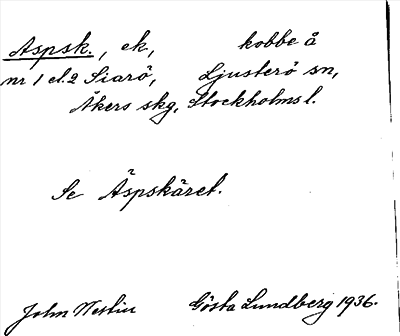 Aspsk., ek, kobbe å
nr 1 el. 2 Siarö, Ljusterö sn,
Åkers skg, Stockholms l.
Se Äpskäret.
John Westin Gösta Lundberg 1936.